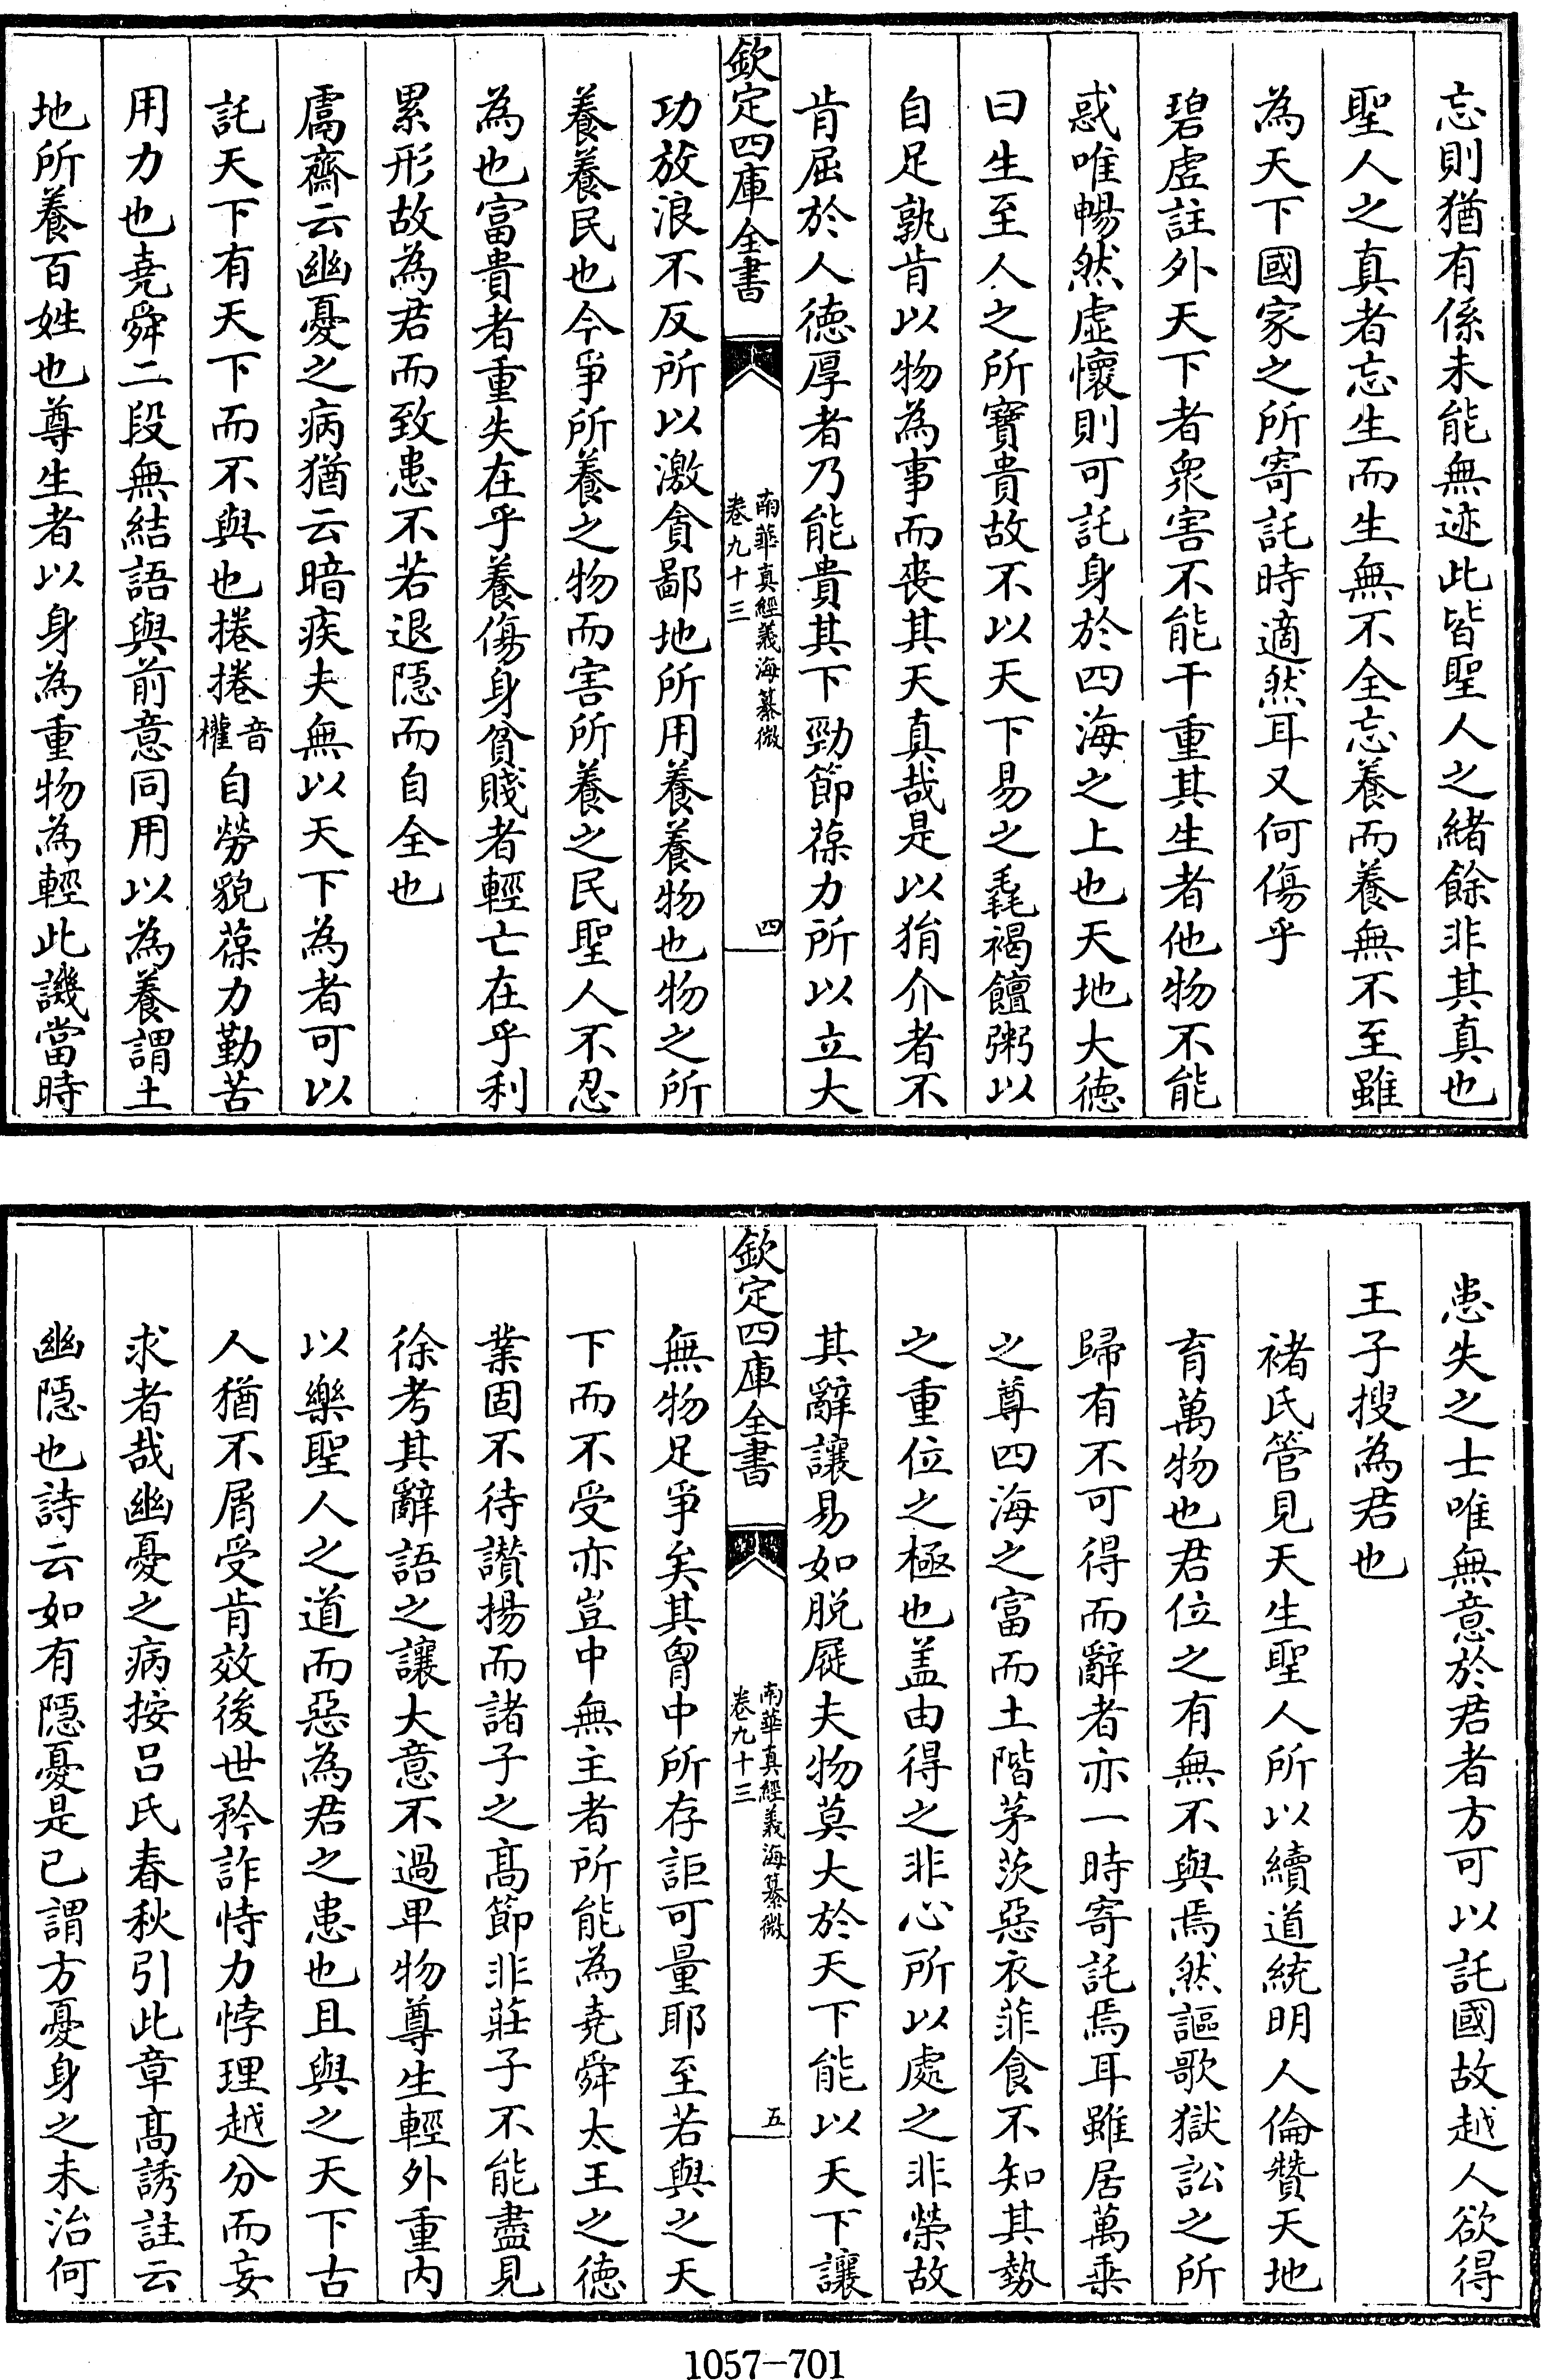 忘則猶有係未能無迹此皆聖人之緒餘非其真也
聖人之真者忘生而生無不全忘養而養無不至雖
為天下國家之所寄託時適然耳又何傷乎
碧虛註外天下者衆害不能干重其生者他物不能
惑唯暢然虛懷則可託身於四海之上也天地大德
曰生至人之所寶貴故不以天下易之毳褐饘粥以
自足孰肯以物為事而喪其天真哉是以狷介者不
肯屈於人德厚者乃能貴其下勁節葆力所以立大
欽定四庫全書
南華真經義海纂微
卷九十三
四
功放浪不反所以激貪鄙地所用養養物也物之所
養養民也今爭所養之物而害所養之民聖人不忍
為也富貴者重失在乎養傷身貧賤者輕亡在乎利
累形故為君而致患不若退隱而自全也
鬳齋云幽憂之病猶云暗疾夫無以天下為者可以
託天下有天下而不與也捲捲音權自勞貌葆力勤苦
用力也堯舜二段無結語與前意同用以為養謂土
地所養百姓也尊生者以身為重物為輕此譏當時
患失之士唯無意於君者方可以託國故越人欲得
王子搜為君也
褚氏管見天生聖人所以續道統明人倫贊天地
育萬物也君位之有無不與焉然謳歌獄訟之所
歸有不可得而辭者亦一時寄託焉耳雖居萬乗
之尊四海之富而土階茅茨惡衣菲食不知其勢
之重位之極也盖由得之非心所以處之非榮故
其辭讓易如脫屣夫物莫大於天下能以天下讓
欽定四庫全書
南華真經義海纂微
卷九十三
五
無物足爭矣其胷中所存詎可量耶至若與之天
下而不受亦豈中無主者所能為堯舜太王之德
業固不待讚揚而諸子之髙節非莊子不能盡見
徐考其辭語之讓大意不過卑物尊生輕外重内
以樂聖人之道而惡為君之患也且與之天下古
人猶不屑受肯效後世矜詐恃力悖理越分而妄
求者哉幽憂之病按吕氏春秋引此章髙誘註云
幽隱也詩云如有隱憂是已謂方憂身之未治何
1057—701